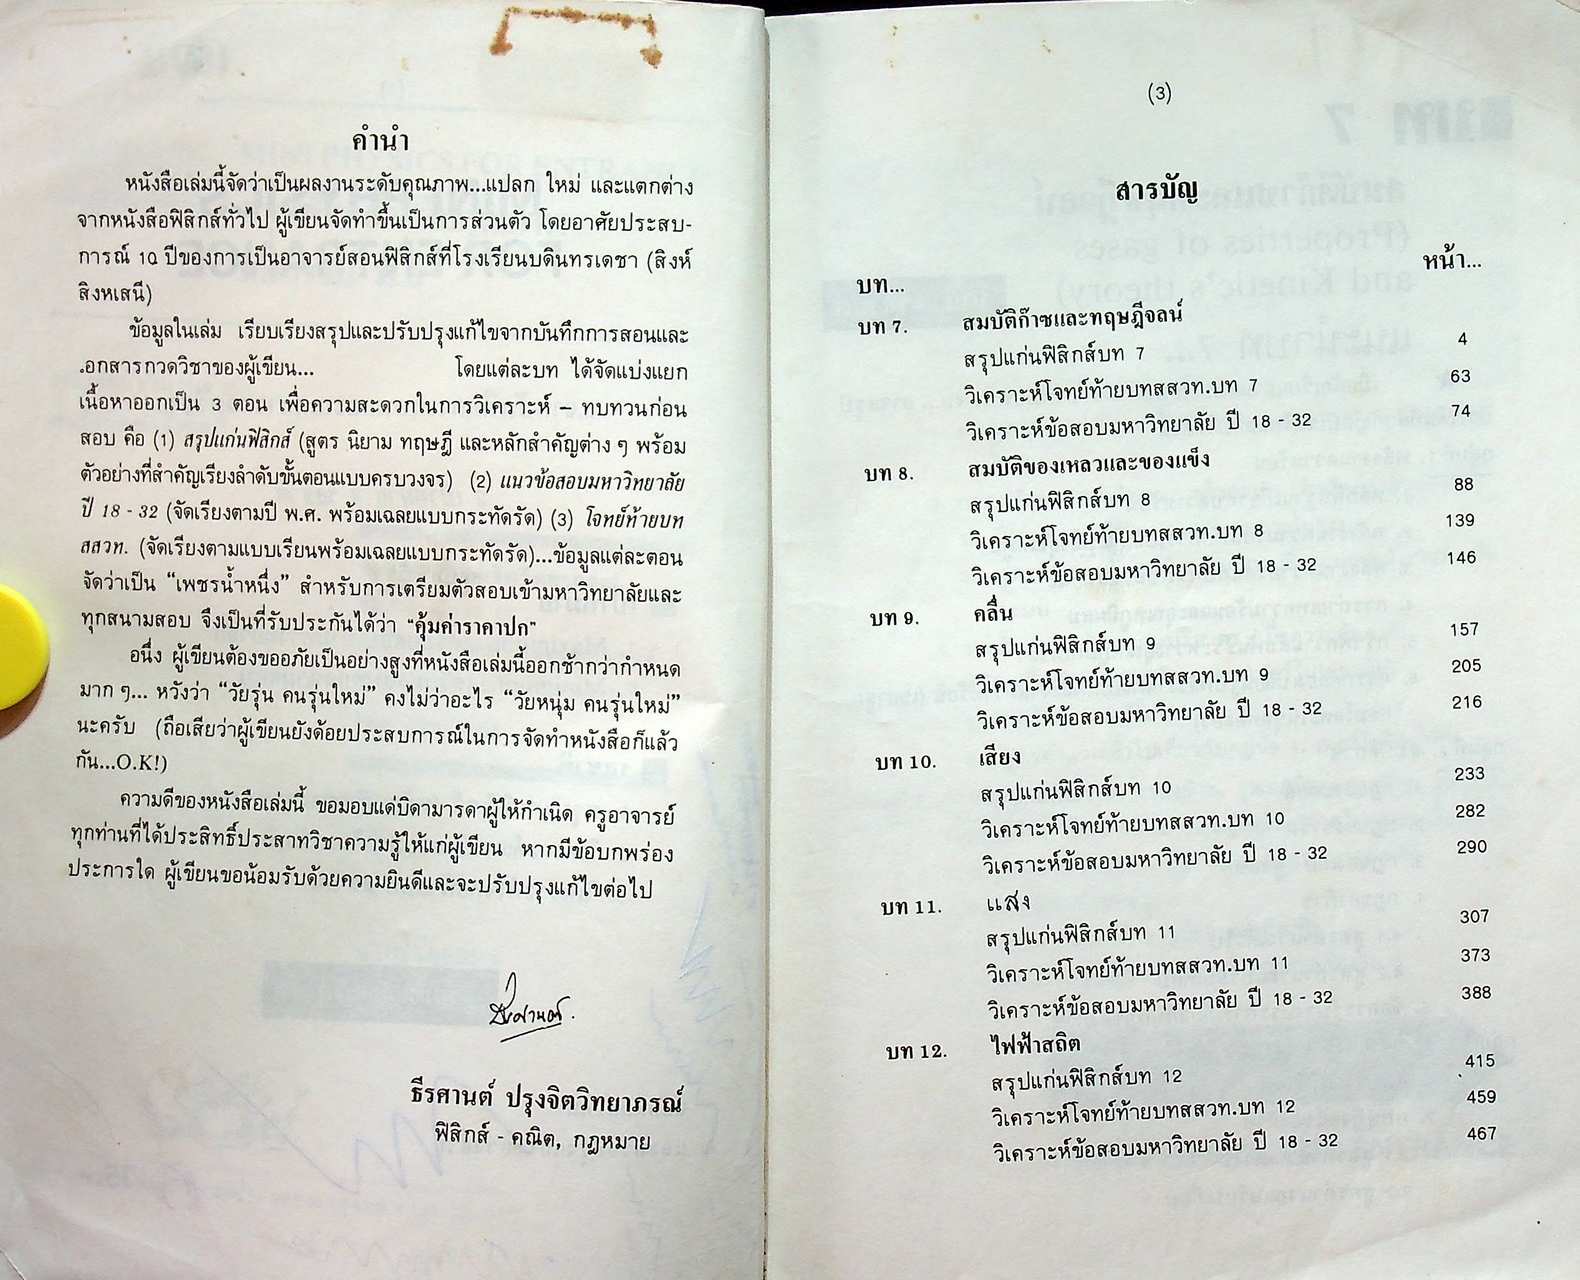 คำนำ
หนังสือเล่มนี้จัดว่าเป็นผลงานระดับคุณภาพ...แปลก ใหม่ และแตกต่าง
จากหนังสือฟิสิกส์ทั่วไป ผู้เขียนจัดทำขึ้นเป็นการส่วนตัว โดยอาศัยประสบ-
การณ์ 10 ปีของการเป็นอาจารย์สอนฟิสิกส์ที่โรงเรียนบดินทรเดชา (สิงห์
สิงหเสนี)
ข้อมูลในเล่ม เรียบเรียงสรุปและปรับปรุงแก้ไขจากบันทึกการสอนและ
.อกสารกวดวิชาของผู้เขียน... โดยแต่ละบท ได้จัดแบ่งแยก
เนื้อหาออกเป็น 3 ตอน เพื่อความสะดวกในการวิเคราะห์ – ทบทวนก่อน
สอบ คือ (1) สรุปแก่นฟิสิกส์ (สูตร นิยาม ทฤษฎี และหลักสำคัญต่าง ๆ พร้อม
ตัวอย่างที่สำคัญเรียงลำดับขั้นตอนแบบครบวงจร) (2) แนวข้อสอบมหาวิทยาลัย
ปี 18 - 32 (จัดเรียงตามปี พ.ศ. พร้อมเฉลยแบบกระทัดรัด) (3) โจทย์ท้ายบท
สสวท. (จัดเรียงตามแบบเรียนพร้อมเฉลยแบบกระทัดรัด)...ข้อมูลแต่ละตอน
จัดว่าเป็น “เพชรน้ำหนึ่ง” สำหรับการเตรียมตัวสอบเข้ามหาวิทยาลัยและ
ทุกสนามสอบ จึงเป็นที่รับประกันได้ว่า “คุ้มค่าราคาปก”
อนึ่ง ผู้เขียนต้องขออภัยเป็นอย่างสูงที่หนังสือเล่มนี้ออกช้ากว่ากำหนด
มาก ๆ... หวังว่า “วัยรุ่น คนรุ่นใหม่” คงไม่ว่าอะไร “วัยหนุ่ม คนรุ่นใหม่”
นะครับ (ถือเสียว่าผู้เขียนยังด้อยประสบการณ์ในการจัดทำหนังสือก็แล้ว
กัน...O.K!)
ความดีของหนังสือเล่มนี้ ขอมอบแด่บิดามารดาผู้ให้กำเนิด ครูอาจารย์
ทุกท่านที่ได้ประสิทธิ์ประสาทวิชาความรู้ให้แก่ผู้เขียน หากมีข้อบกพร่อง
ประการใด ผู้เขียนขอน้อมรับด้วยความยินดีและจะปรับปรุงแก้ไขต่อไป
ธีรศานต์
ธีรศานต์ ปรุงจิตวิทยาภรณ์
ฟิสิกส์ - คณิต, กฎหมาย
(3)
สารบัญ
บท... หน้า...
บท 7. สมบัติก๊าซและทฤษฎีจลน์
สรุปแก่นฟิสิกส์บท 7 4
วิเคราะห์โจทย์ท้ายบทสสวท.บท 7 63
วิเคราะห์ข้อสอบมหาวิทยาลัย ปี 18 - 32 74
บท 8. สมบัติของเหลวและของแข็ง
สรุปแก่นฟิสิกส์บท 8 88
วิเคราะห์โจทย์ท้ายบทสสวท.บท 8 139
วิเคราะห์ข้อสอบมหาวิทยาลัย ปี 18 - 32 146
บท 9. คลื่น
สรุปแก่นฟิสิกส์บท 9 157
วิเคราะห์โจทย์ท้ายบทสสวท.บท 9 205
วิเคราะห์ข้อสอบมหาวิทยาลัย ปี 18 - 32 216
บท 10. เสียง
สรุปแก่นฟิสิกส์บท 10 233
วิเคราะห์โจทย์ท้ายบทสสวท.บท 10 282
วิเคราะห์ข้อสอบมหาวิทยาลัย ปี 18 - 32 290
บท 11. แสง
สรุปแก่นฟิสิกส์บท 11 307
วิเคราะห์โจทย์ท้ายบทสสวท.บท 11 373
วิเคราะห์ข้อสอบมหาวิทยาลัย ปี 18 - 32 388
บท 12. ไฟฟ้าสถิต
สรุปแก่นฟิสิกส์บท 12 415
วิเคราะห์โจทย์ท้ายบทสสวท.บท 12 459
วิเคราะห์ข้อสอบมหาวิทยาลัย ปี 18 - 32 467